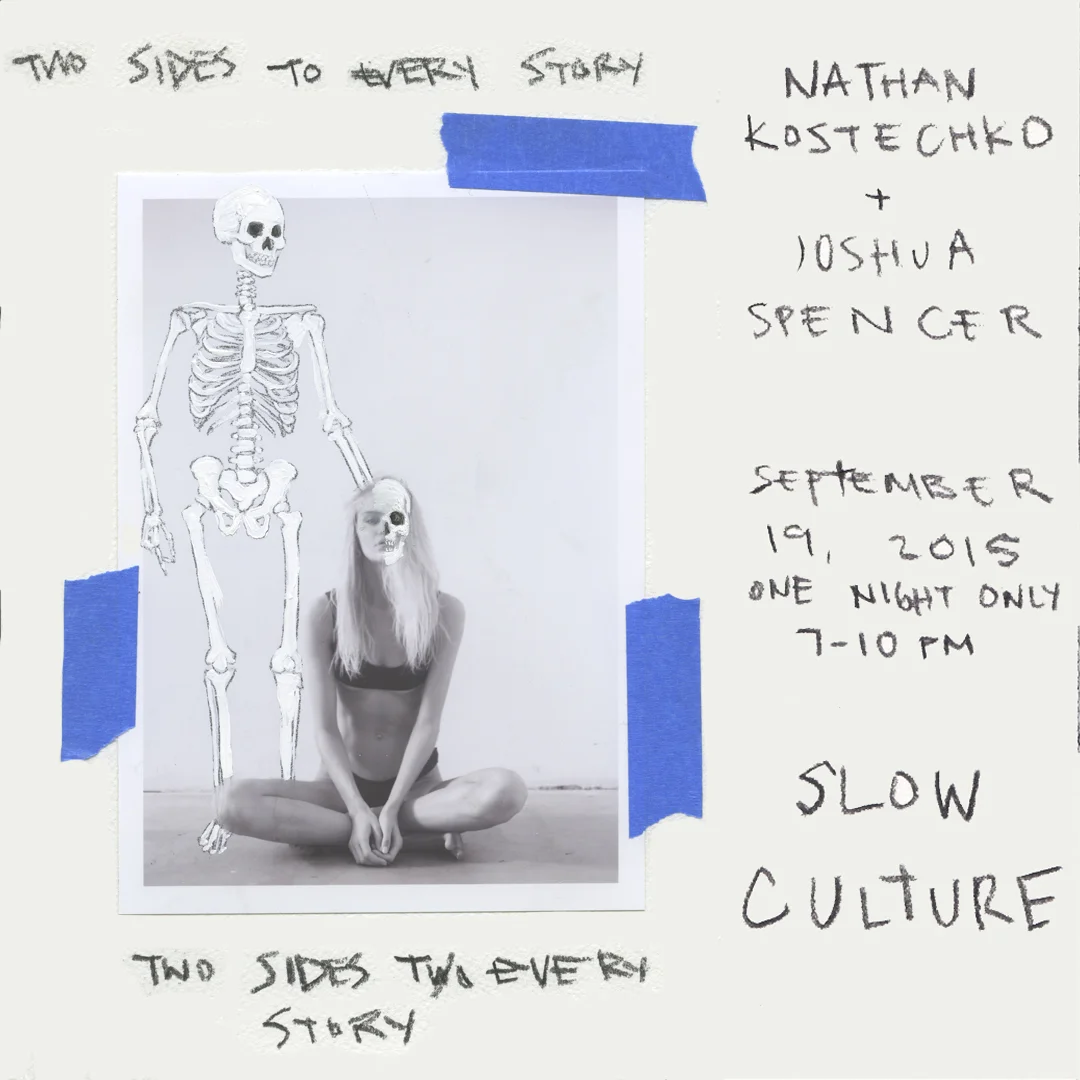 TWO SIDES TO EVERY STORY
NATHAN
KOSTECHKO
+
JOSHUA
SPENCER
SEPTEMBER
19, 2015
ONE NIGHT ONLY
7-10 PM
SLOW
CULTURE
TWO SIDES TWO EVERY
STORY